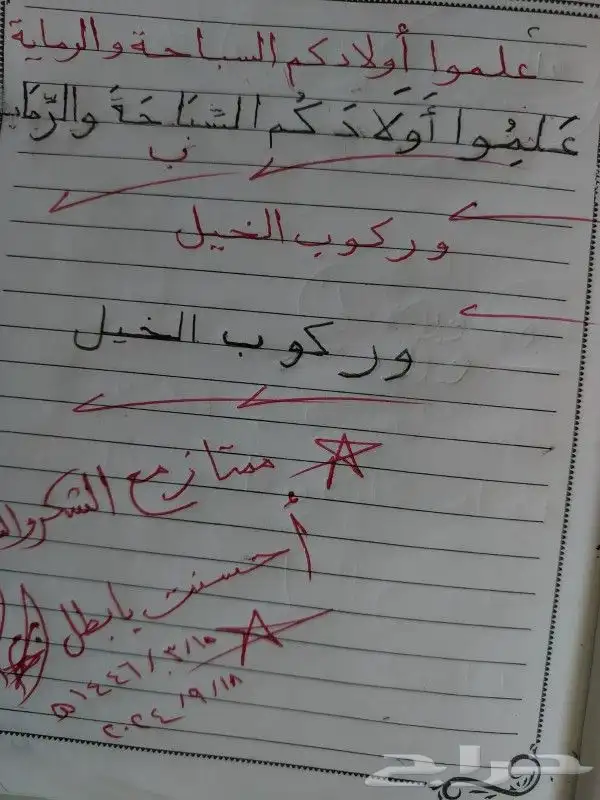 علموا أولادكم السباحة والرماية
عَلِمُوا أَوَلَادَكُم السَّبَاحَةَ والرِّمَاي
ب
وركوب الخيل
وركوب الخيل
ممتاز مع الشكر
أحسنت يا بطل
١٤٤٦/٣/١٥ هـ
٢٠٢٤/٩/١٨
حراج